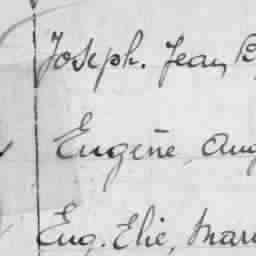 Joseph. Jean B
Eugène, Aug
Eug. Elie, Mar